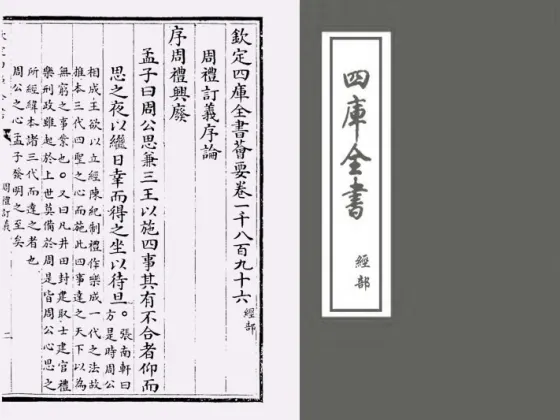 欽定四庫全書薈要卷一千八百九十六
經部
周禮訂義序論
序周禮興廢
孟子曰周公思兼三王以施四事其有不合者仰而
思之夜以繼日幸而得之坐以待旦。
張南軒曰
方是時周公
相成王欲以立經陳紀制禮作樂成一代之法故
推本三代四聖之心而施此四事達之天下以為
無窮之事業也。又曰凡井田封建取士建官禮
樂刑政雖起於上世莫備於周是皆周公心思之
所經緯本諸三代而達之者也
周公之心孟子發明之至矣
周禮訂義
二
四庫全書
經部